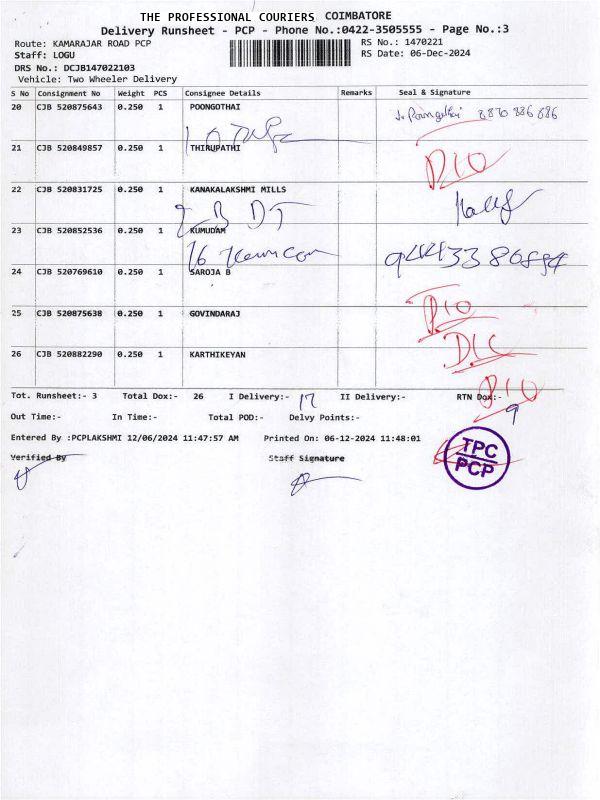 THE PROFESSIONAL COURIERS COIMBATORE
Delivery Runsheet - PCP - Phone No.:0422-3505555 - Page No.:3
Route: KAMARAJAR ROAD PCP RS No.: 1470221
Staff: LOGU RS Date: 06-Dec-2024
DRS No.: DCJB147022103
Vehicle: Two Wheeler Delivery
S No Consignment No Weight PCS Consignee Details Remarks Seal & Signature
20 CJB 520875643 0.250 1 POONGOTHAI
21 CJB 520849857 0.250 1 THIRUPATHI
22 CJB 520831725 0.250 1 KANAKALAKSHMI MILLS
23 CJB 520852536 0.250 1 KUMUDAM
24 CJB 520769610 0.250 1 SAROJA B
25 CJB 520875638 0.250 1 GOVINDARAJ
26 CJB 520882290 0.250 1 KARTHIKEYAN
Tot. Runsheet:- 3 Total Dox:- 26 I Delivery:- 17 II Delivery:- RTN Dox:- 9
Out Time:- In Time:- Total POD:- Delvy Points:-
Entered By :PCPLAKSHMI 12/06/2024 11:47:57 AM Printed On: 06-12-2024 11:48:01
Verified By Staff Signature
TPC
PCP